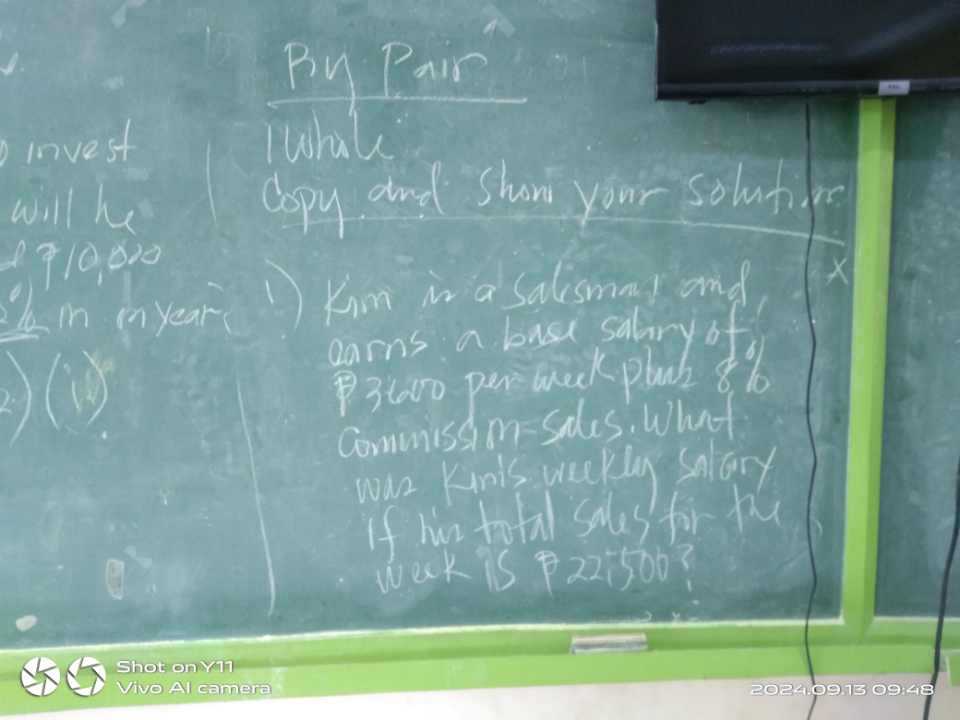 By Pair
1 Whole
Copy and Show your solution
invest
will be
₱10,000
% in
1) Kim is a salesman and
earns a base salary of
₱3600 per week plus 8%
commission sales. What
was Kim's weekly salary
if his total sales for the
week is ₱22,500?
Shot on Y11
Vivo AI camera
2024.09.13 09:48